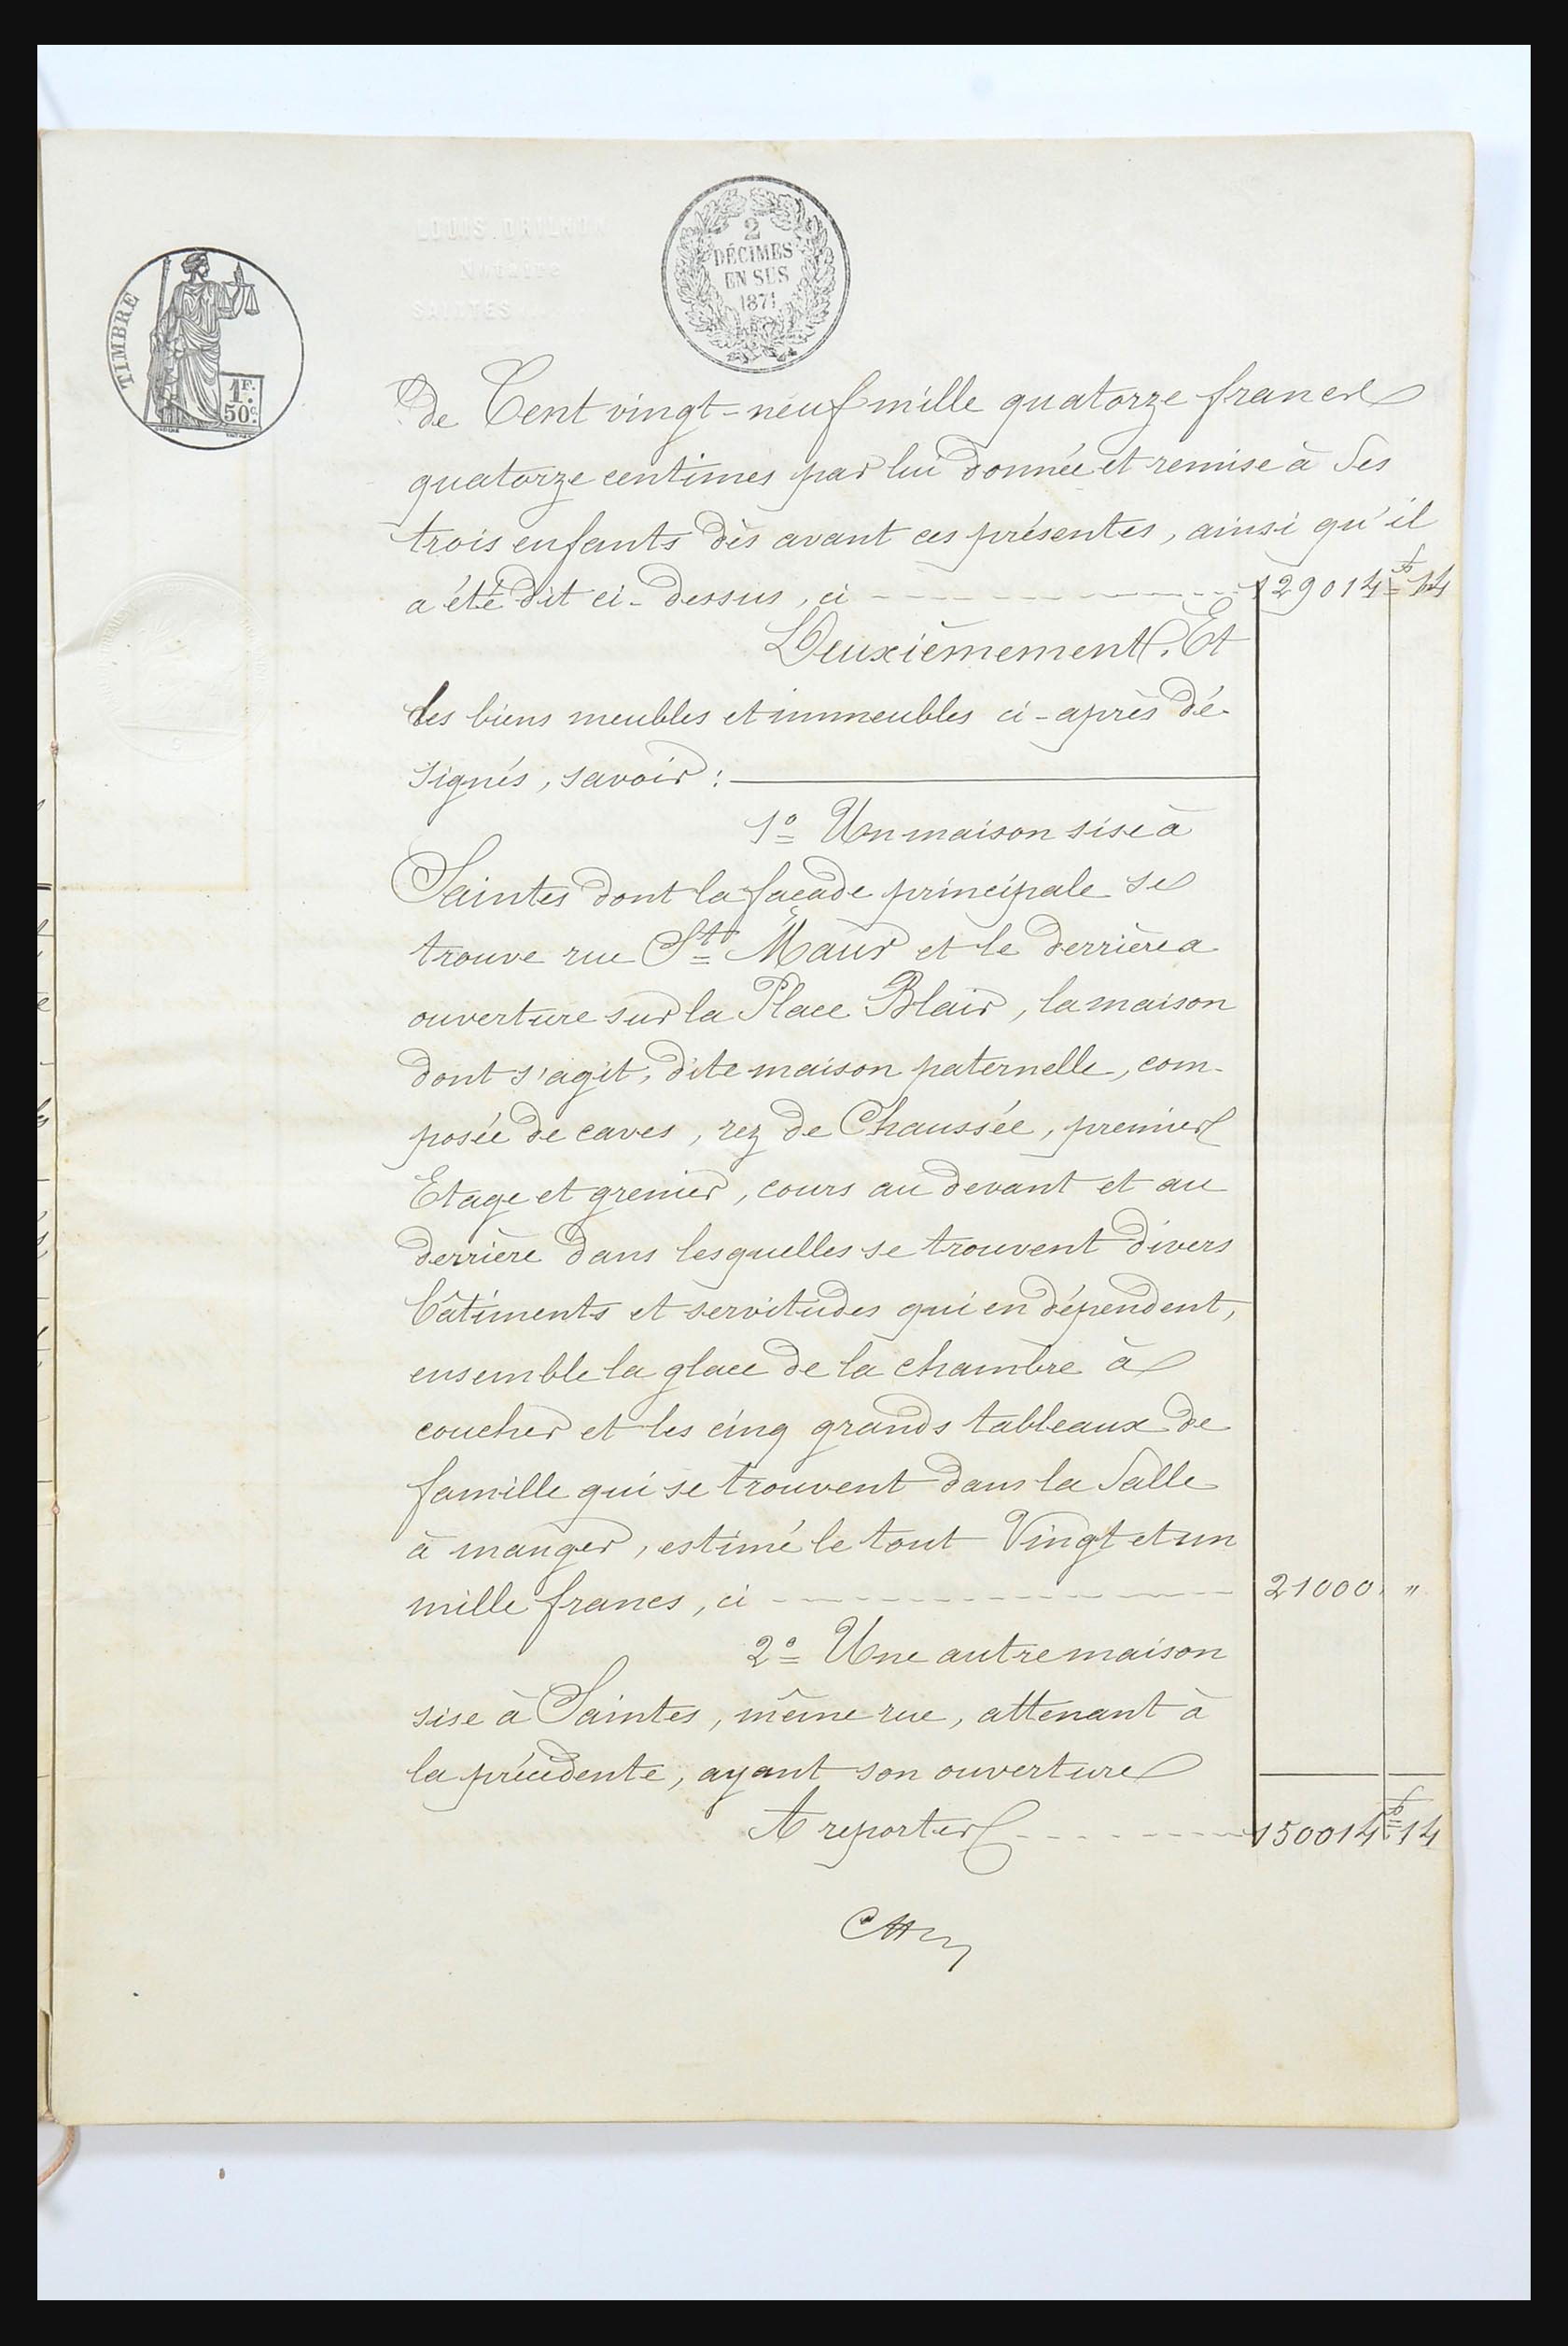 LOUIS. DRILHON
Notaire
SAINTES
2
DÉCIMES
EN SUS
1871
TIMBRE
1F.
50c.
de Cent vingt-neuf mille quatorze francs
quatorze centimes par lui donnée et remise à Ses
trois enfants dès avant ces présentes, ainsi qu'il
a été dit ci-dessus, ci 129014 fs 14
Deuxièmement. Et
les biens meubles et immeubles ci-après dé-
signés, savoir :
1º Un maison sise à
Saintes dont la façade principale se
trouve rue St Maur et le derrière a
ouverture sur la Place Blair, la maison
dont s'agit, dite maison paternelle, com-
posée de caves, rez de Chaussée, premier
Etage et grenier, cours au devant et au
derrière dans lesquelles se trouvent divers
bâtiments et servitudes qui en dépendent,
ensemble la glace de la chambre à
coucher et les cinq grands tableaux de
famille qui se trouvent dans la Salle
à manger, estimé le tout Vingt et un
mille francs, ci 21000 "
2º Une autre maison
sise à Saintes, même rue, attenant à
la précédente, ayant son ouverture
A reporter 150014 fs 14